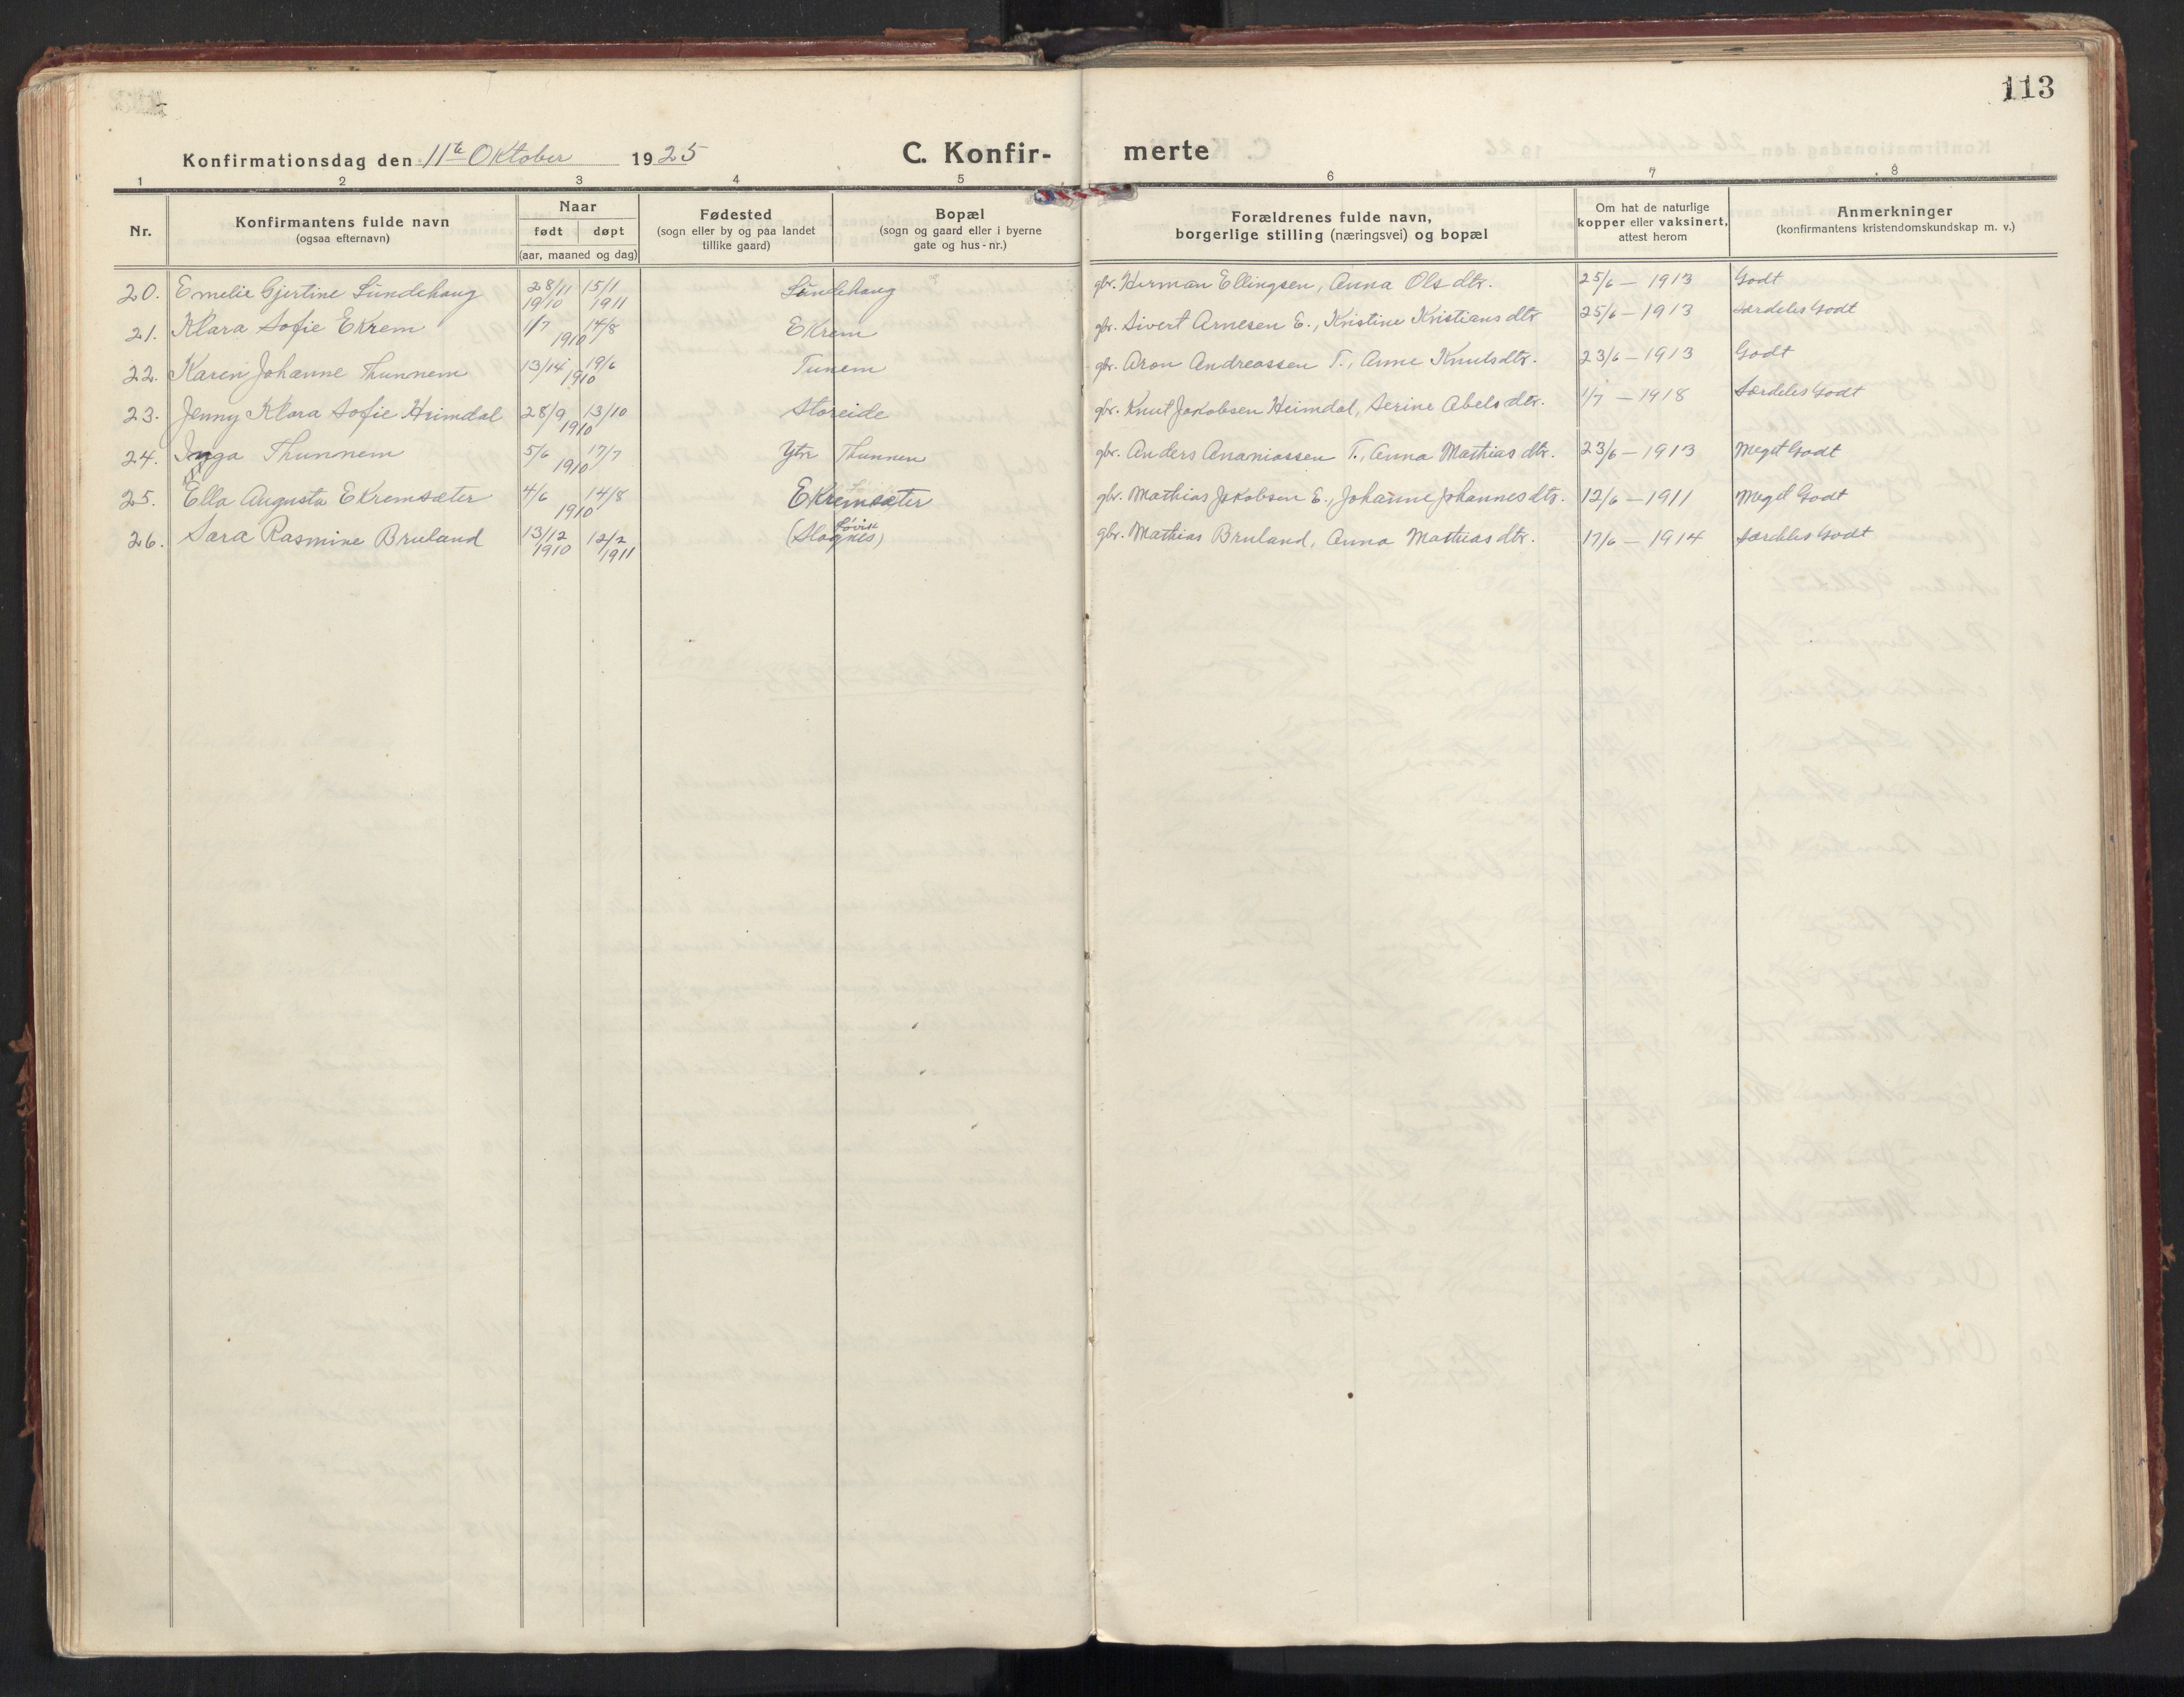 113
Konfirmationsdag den 11te Oktober 1925 C. Konfir- merte
1 2 3 4 5 6 7 8
Nr. Konfirmantens fulde navn (ogsaa efternavn) Naar født døpt (aar, maaned og dag) Fødested (sogn eller by og paa landet tillike gaard) Bopæl (sogn og gaard eller i byerne gate og hus-nr.) Forældrenes fulde navn, borgerlige stilling (næringsvei) og bopæl Om hat de naturlige kopper eller vaksinert, attest herom Anmerkninger (konfirmantens kristendomskundskap m. v.)
20. Emelie Gjertine Sundehaug 28/11 1910 15/1 1911 Sundehaug gbr. Herman Ellingsen, Anna Olsdtr. 25/6 – 1913 Godt
21. Klara Sofie Ekrem 1/7 14/8 1910 Ekrem gbr. Sivert Arnesen E., Kristine Kristiansdtr 25/6 – 1913 Særdeles Godt
22. Karen Johanne Thunnem 13/4 19/6 1910 Tunem gbr. Aron Andreassen T., Anne Knutsdtr. 23/6 – 1913 Godt
23. Jenny Klara Sofie Heimdal 28/9 13/10 1910 Storeide gbr. Knut Jakobsen Heimdal, Serine Abelsdtr. 1/7 – 1918 Særdeles Godt
24. Inga Thunnem 5/6 17/7 1910 Ytre Thunnen gbr. Anders Ananiassen T., Anna Mathiasdtr. 23/6 – 1913 Meget Godt
25. Ella Augusta Ekremsæter 4/6 14/8 1910 Ekremsæter gbr. Mathias Jakobsen E., Johanne Johannesdtr. 12/6 – 1911 Meget Godt
26. Sara Rasmine Bruland 13/12 1910 12/2 1911 (Slagnes) Løvik gbr. Mathias Bruland, Anna Mathiasdtr. 17/6 – 1914 Særdeles Godt